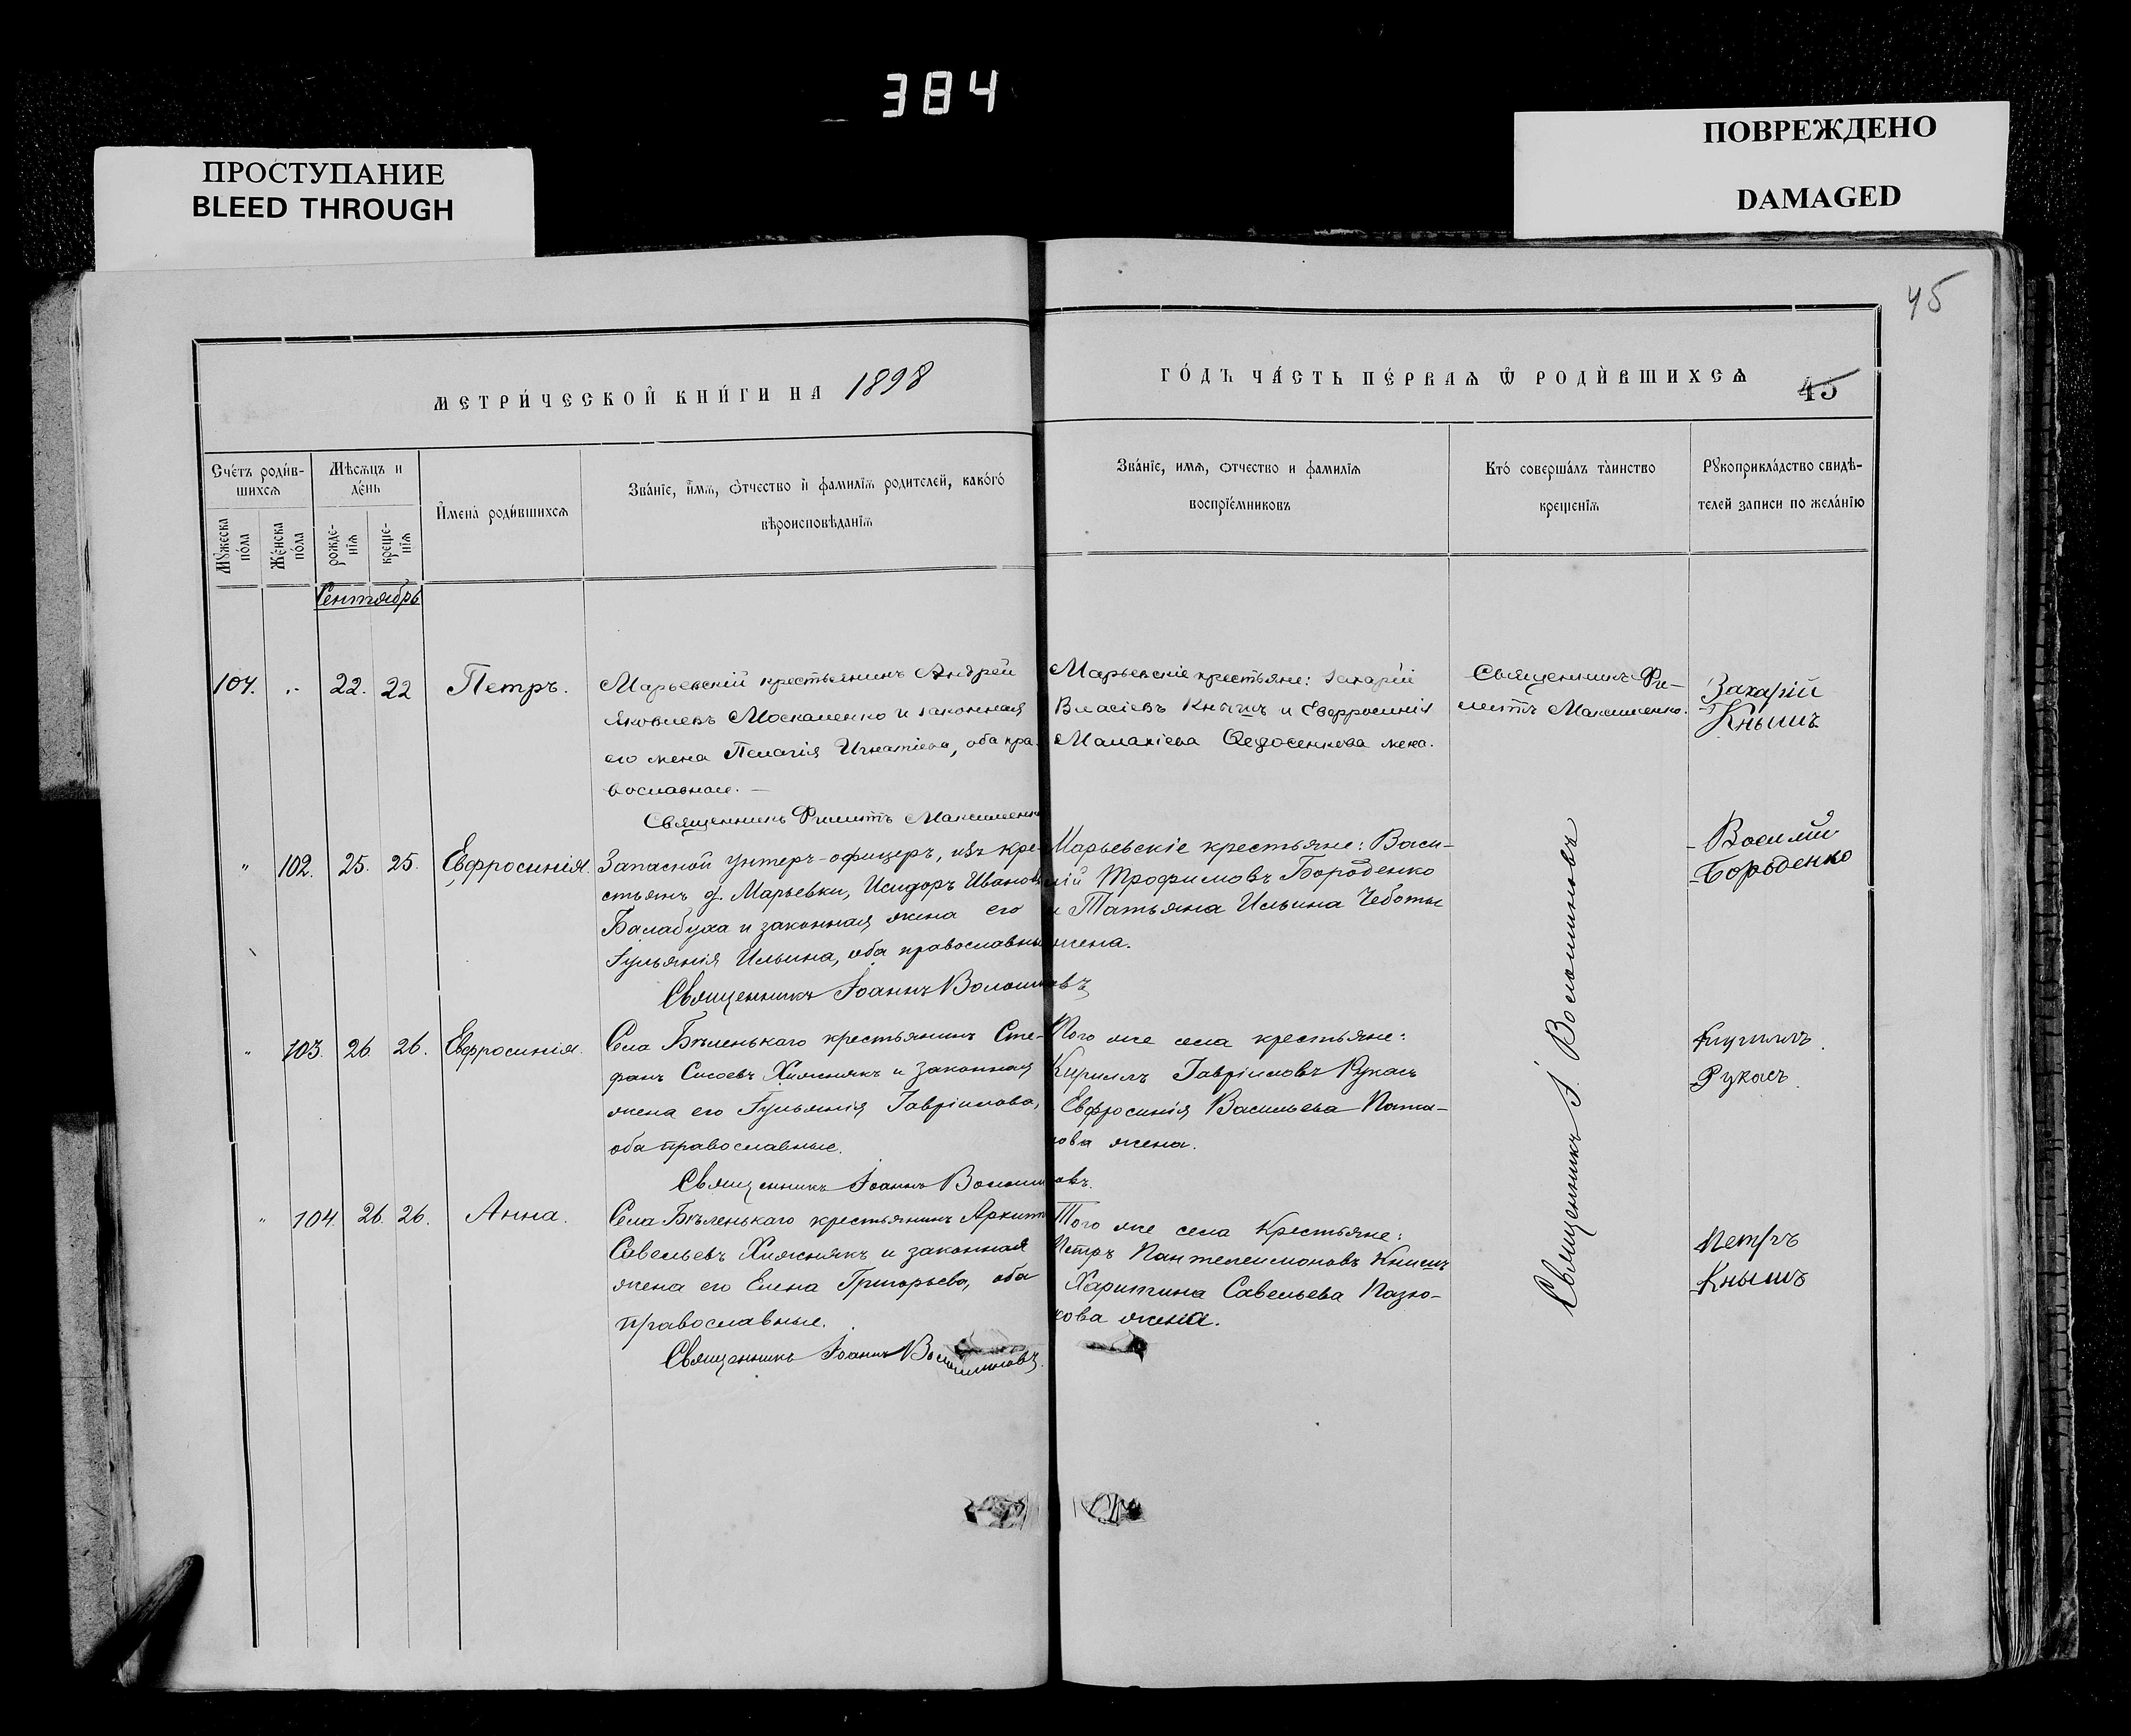 384
ПРОСТУПАНИЕ
BLEED THROUGH
ПОВРЕЖДЕНО
DAMAGED
45
МЕТРИ́ЧЕСКОЙ КНИ́ГИ НА 1898
ГО́ДЪ ЧА́СТЬ ПЕ́РВАѦ Ѿ РОДИ́ВШИХСѦ
45
Сче́тъ роди́в-
шихсѧ
Мѣсѧцъ и
де́нь
Мꙋжеска
по́ла
Же́нска
по́ла
рожде-
нїѧ
креще-
нїѧ
И҆мена̀ роди́вшихсѧ
Зва́нїе, и҆́мѧ, ѻ҆́тчество и҆ фамилїѧ родителей, како́гѡ
вѣроисповѣданїѧ
Зва́нїе, имѧ, ѻтчество и фамилїѧ
воспрїе́мниковъ
Кто́ соверша́лъ та̀инство
крещенїѧ
Рꙋкоприкла́дство свидѣ-
телей записи по жела́нїю
Сентябрь
107. 22. 22 Петръ.
Марьевскій крестьянинъ Андрей
Яковлевъ Москаленко и законная
его жена Пелагія Игнатіева, оба пра-
вославные.
Священникъ Филиппъ Максименко
Марьевскіе крестьяне: Захарій
Власіевъ Кнышъ и Евфросинія
Малахіева Ѳедосенкова жена.
Священникъ Фи-
липпъ Максименко.
Захарій
Кнышъ
" 102. 25. 25. Евфросинія.
Запасной унтеръ-офицеръ, изъ кре-
стьянъ д. Марьевки, Исидоръ Ивановъ
Балабуха и законная жена его
Іульянія Ильина, оба православны
Священникъ Іоаннъ Волошиновъ
Марьевскіе крестьяне: Васи-
лій Трофимовъ Бороденко
и Татьяна Ильина Чеботы
жена.
Василій
Бороденко
" 103. 26. 26. Евфросинія.
Села Бѣленькаго крестьянинъ Сте-
фанъ Сисоевъ Хижнякъ и законная
жена его Іульянія Гавріилова,
оба православные.
Священникъ Іоаннъ Волошиновъ.
Того же села крестьяне:
Кириллъ Гавріиловъ Рукасъ
Евфросинія Васильева
жена.
Кириллъ
Рукасъ
" 104. 26. 26. Анна.
Села Бѣленькаго крестьянинъ Архипъ
Савельевъ Хижнякъ и законная
жена его Елена Григорьева, оба
православные.
Священникъ Іоаннъ Волошиновъ.
Того же села Крестьяне:
Петръ Пантелеимоновъ Кнышъ
Харитина Савельева Пазю-
кова жена.
Петръ
Кнышъ
Священникъ І. Волошиновъ